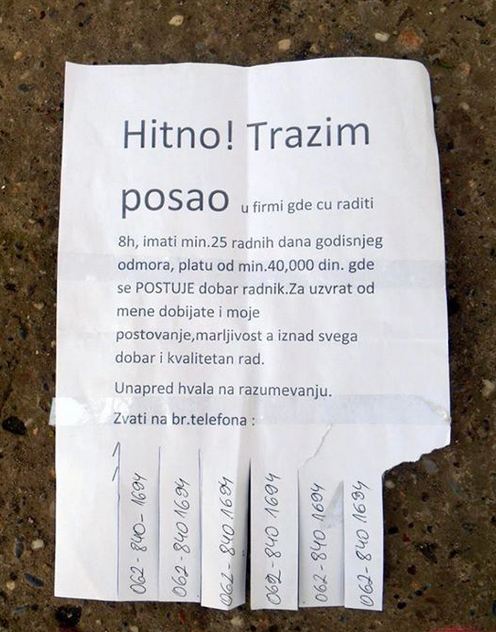 Hitno! Trazim
posao u firmi gde cu raditi
8h, imati min.25 radnih dana godisnjeg
odmora, platu od min.40,000 din. gde
se POSTUJE dobar radnik.Za uzvrat od
mene dobijate i moje
postovanje,marljivost a iznad svega
dobar i kvalitetan rad.
Unapred hvala na razumevanju.
Zvati na br.telefona :
062-840-1694
062-840 1694
062-840 1694
062-840 1694
062-840 1694
062-840 1694